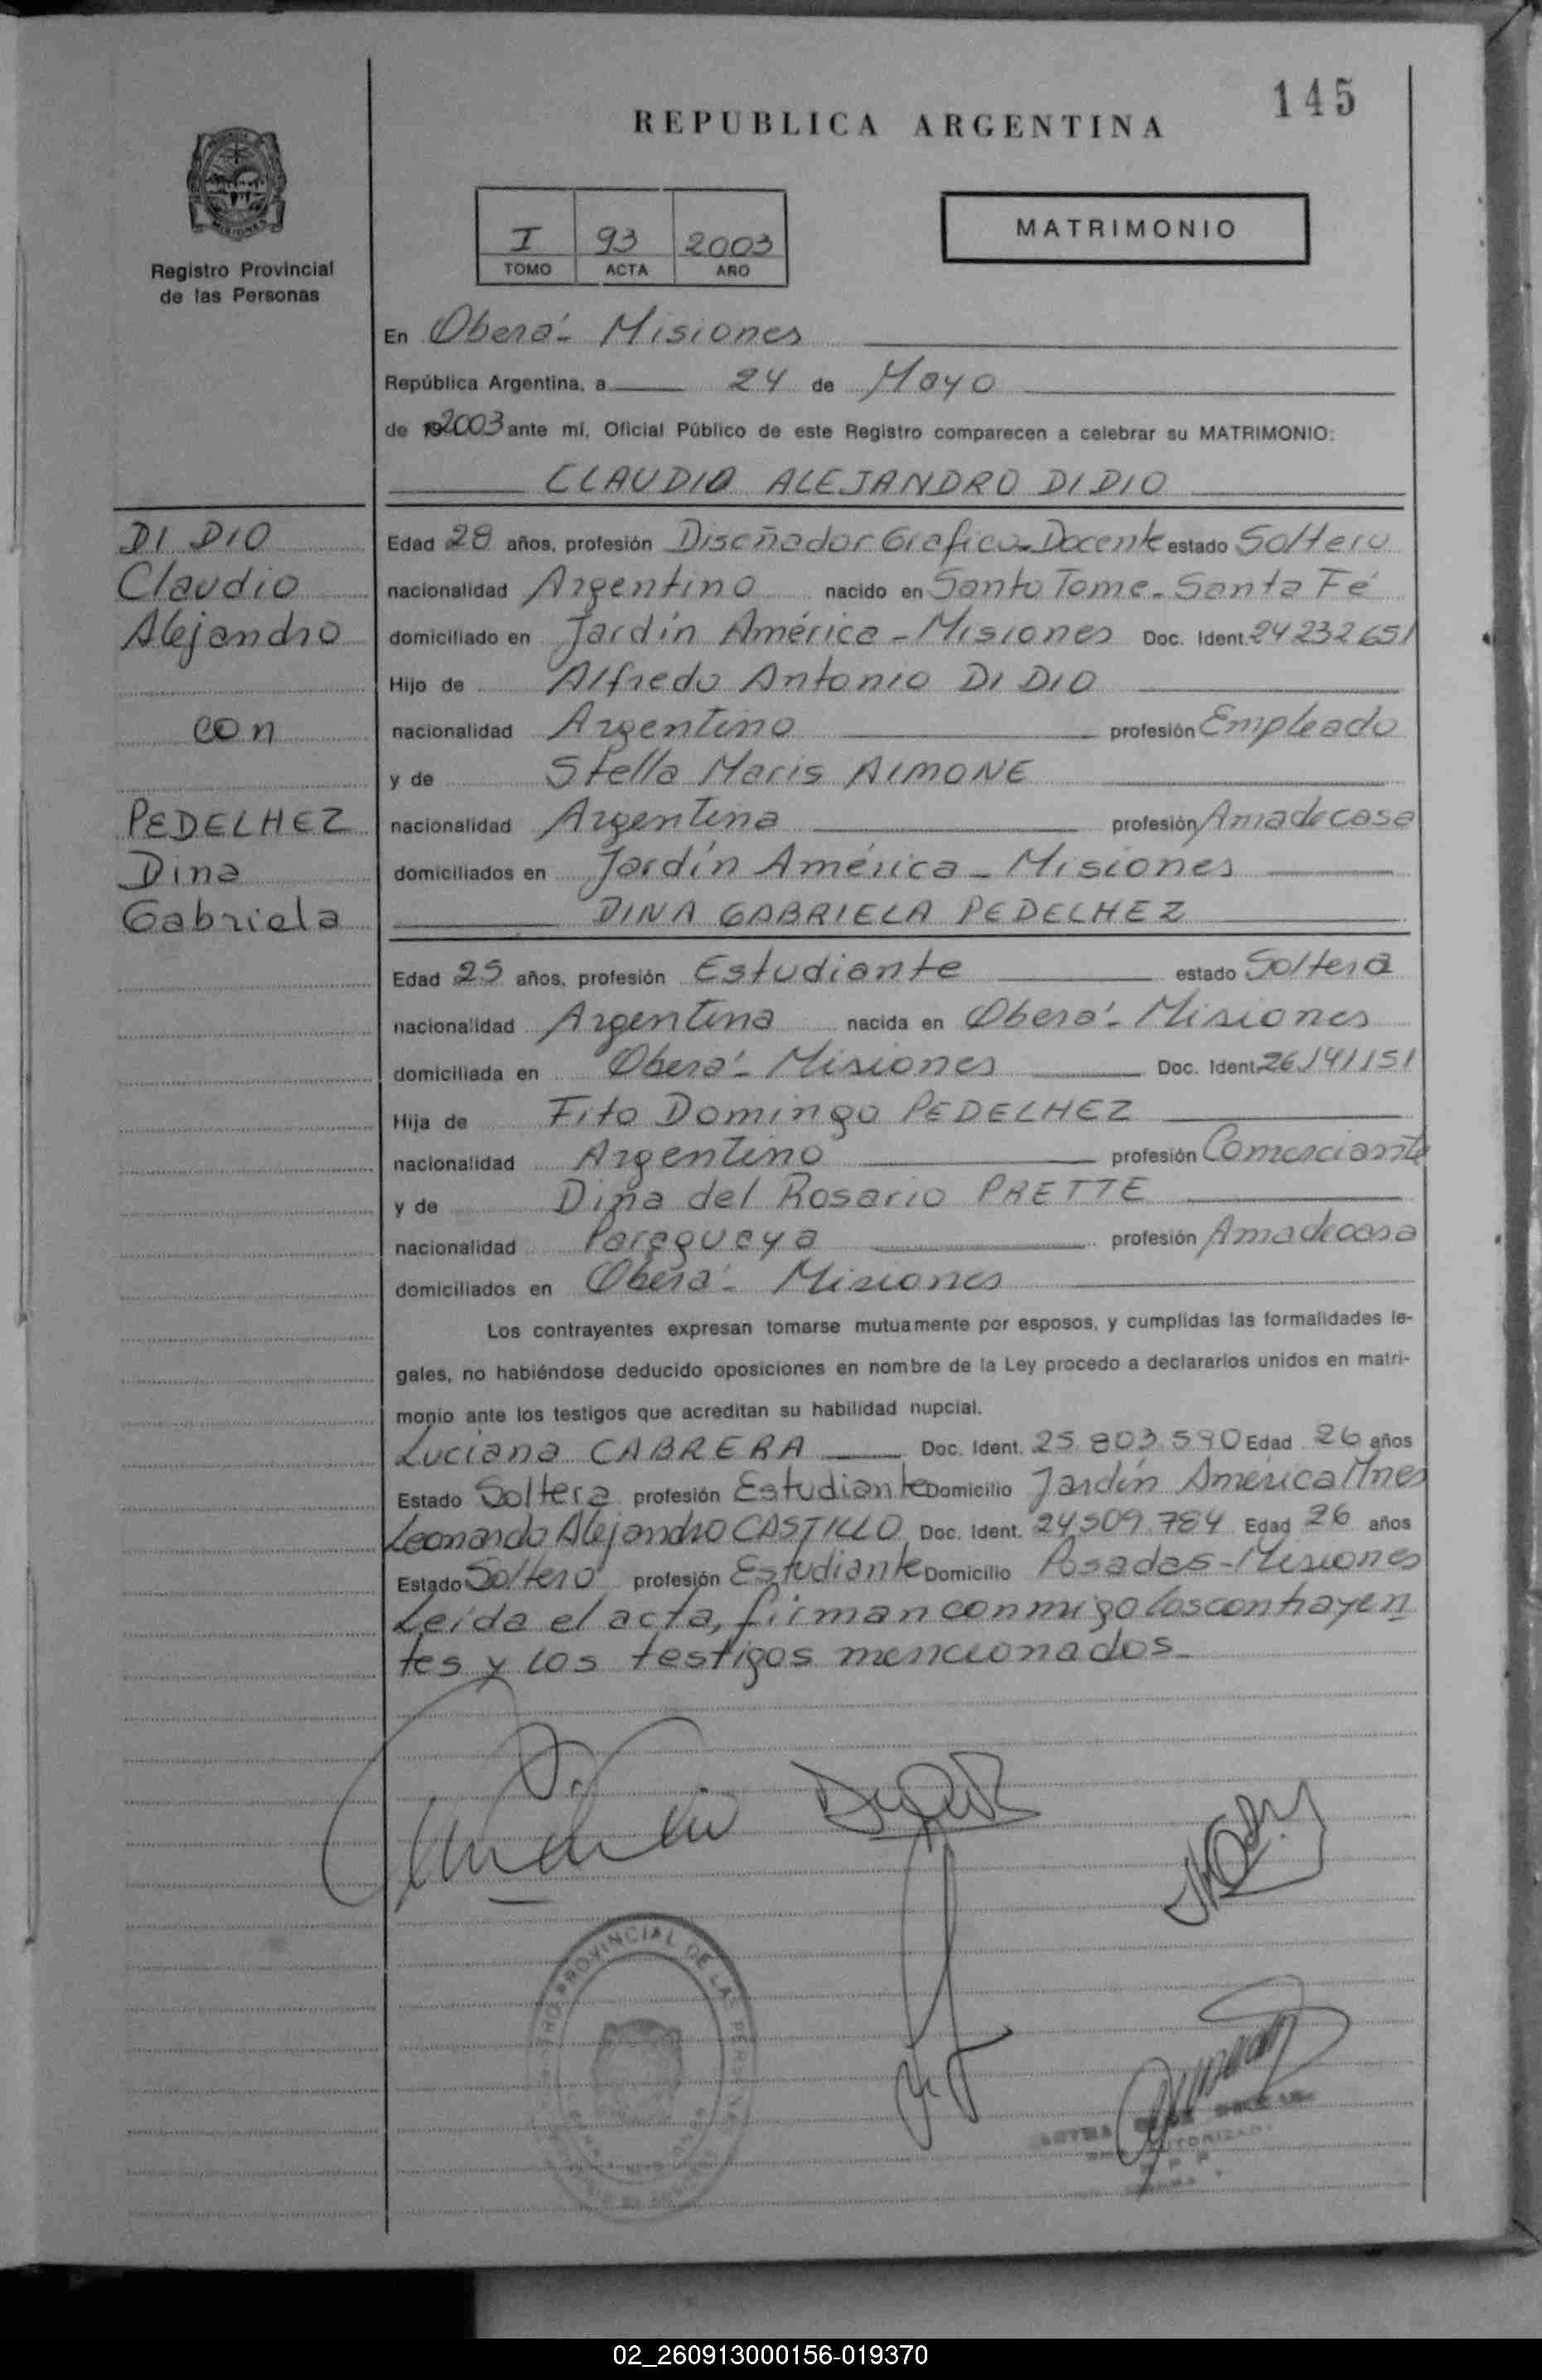 145
REPUBLICA ARGENTINA
MATRIMONIO
I 93 2003
TOMO ACTA AÑO
Registro Provincial
de las Personas
En Oberá - Misiones
República Argentina, a 24 de Mayo
de 192003 ante mí, Oficial Público de este Registro comparecen a celebrar su MATRIMONIO:
CLAUDIO ALEJANDRO DI DIO
DI DIO
Claudio
Alejandro
con
PEDELHEZ
Dina
Gabriela
Edad 28 años, profesión Diseñador Grafico-Docente estado Soltero
nacionalidad Argentino nacido en Santo Tome - Santa Fé
domiciliado en Jardín América - Misiones Doc. Ident. 24 232 651
Hijo de Alfredo Antonio DI DIO
nacionalidad Argentino profesión Empleado
y de Stella Maris AIMONE
nacionalidad Argentina profesión Ama de casa
domiciliados en Jardín América - Misiones
DINA GABRIELA PEDELHEZ
Edad 25 años, profesión Estudiante estado Soltera
nacionalidad Argentina nacida en Oberá - Misiones
domiciliada en Oberá - Misiones Doc. Ident. 26141151
Hija de Fito Domingo PEDELHEZ
nacionalidad Argentino profesión Comerciante
y de Dina del Rosario PRETTE
nacionalidad Paraguaya profesión Ama de casa
domiciliados en Oberá - Misiones
Los contrayentes expresan tomarse mutuamente por esposos, y cumplidas las formalidades le-
gales, no habiéndose deducido oposiciones en nombre de la Ley procedo a declararlos unidos en matri-
monio ante los testigos que acreditan su habilidad nupcial.
Luciana CABRERA Doc. Ident. 25.803.590 Edad 26 años
Estado Soltera profesión Estudiante Domicilio Jardín América Mnes
Leonardo Alejandro CASTILLO Doc. Ident. 24.509.784 Edad 26 años
Estado Soltero profesión Estudiante Domicilio Posadas - Misiones
Leída el acta, firman conmigo los contrayen
tes y los testigos mencionados.
PROVINCIAL DE LAS
02_260913000156-019370